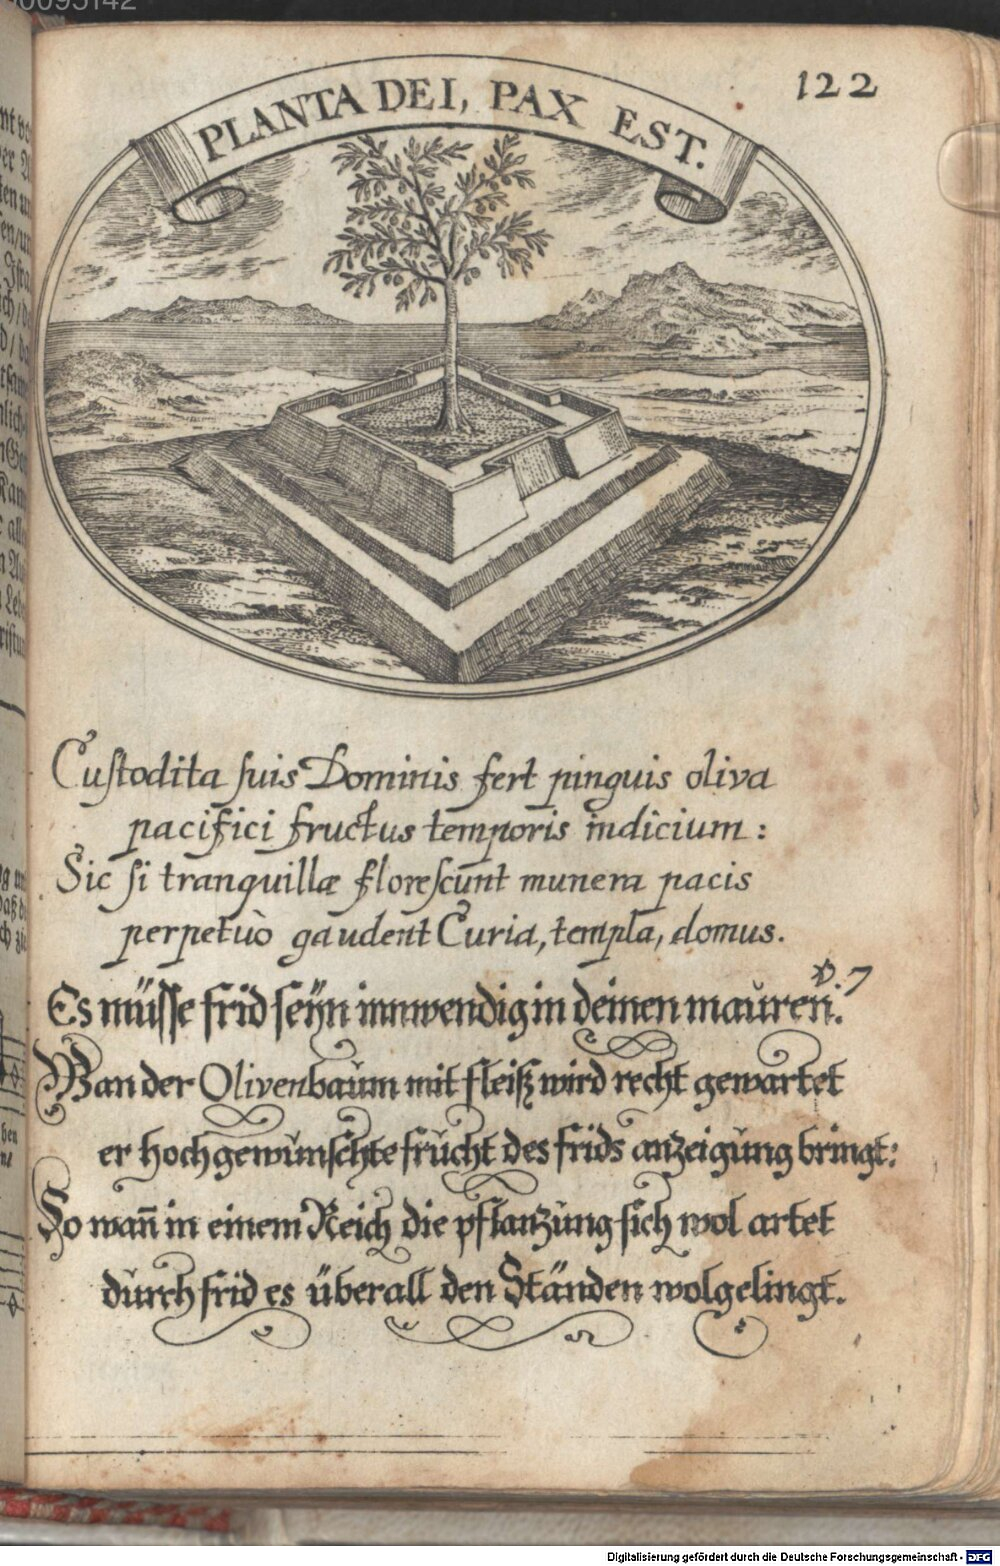 122
PLANTA DEI, PAX EST.
Custodita suis Dominis fert pinguis oliva
pacifici fructus temporis indicium:
Sic si tranquillæ florescunt munera pacis
perpetuò gaudent Curia, templa, domus.
v. 7
Es müsse frid seÿn innwendig in deinen mauren.
Wan der Olivenbaum mit fleiß wird recht gewartet
er hochgewünschte frücht des frids anzeigung bringt:
So wañ in einem Reich die pflanzung sich wol artet
durch frid es überall den Ständen wolgelingt.
Digitalisierung gefördert durch die Deutsche Forschungsgemeinschaft - DFG